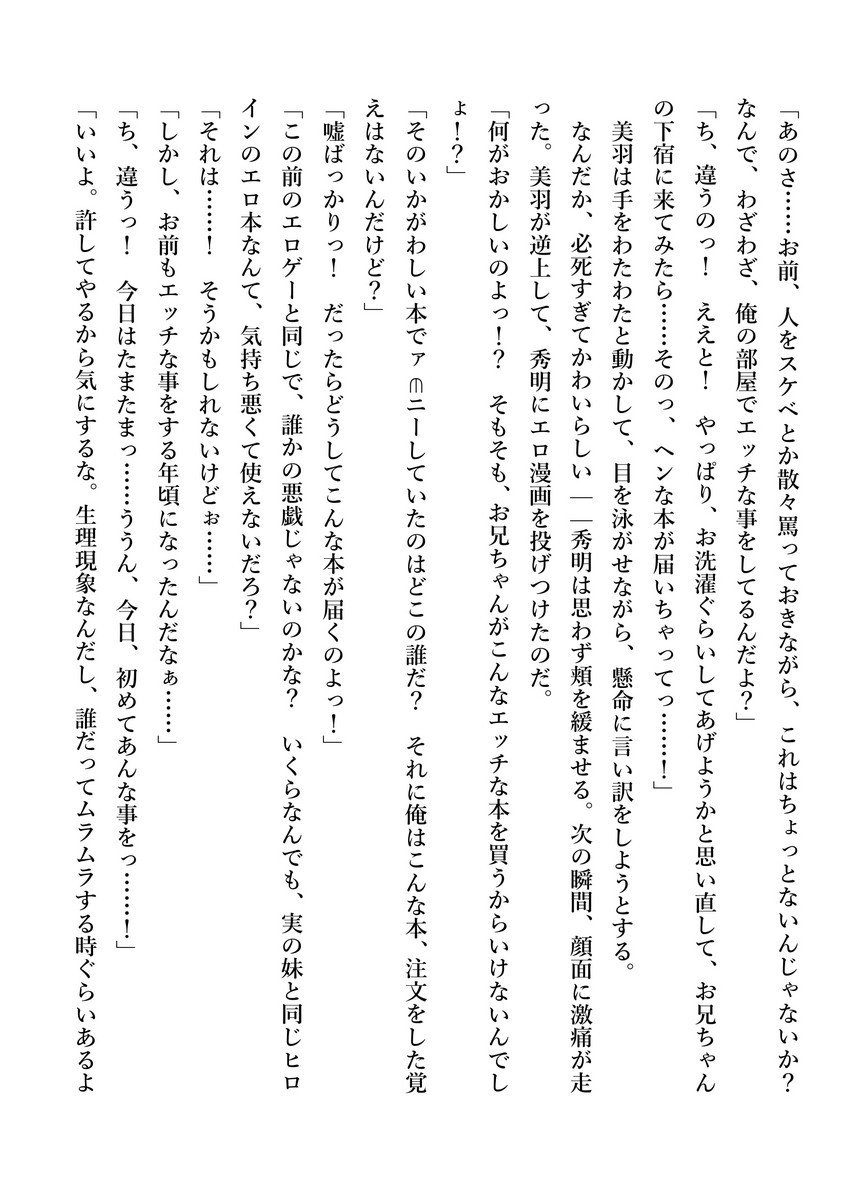 「あのさ……お前、人をスケベとか散々罵っておきながら、これはちょっとないんじゃないか？
なんで、わざわざ、俺の部屋でエッチな事をしてるんだよ？」
「ち、違うのっ！　ええと！　やっぱり、お洗濯ぐらいしてあげようかと思い直して、お兄ちゃん
の下宿に来てみたら……そのっ、ヘンな本が届いちゃってっ……！」
　美羽は手をわたわたと動かして、目を泳がせながら、懸命に言い訳をしようとする。
　なんだか、必死すぎてかわいらしい――秀明は思わず頬を緩ませる。次の瞬間、顔面に激痛が走
った。美羽が逆上して、秀明にエロ漫画を投げつけたのだ。
「何がおかしいのよっ！？　そもそも、お兄ちゃんがこんなエッチな本を買うからいけないんでし
ょ！？」
「そのいかがわしい本でァ ニーしていたのはどこの誰だ？　それに俺はこんな本、注文をした覚
えはないんだけど？」
「嘘ばっかりっ！　だったらどうしてこんな本が届くのよっ！」
「この前のエロゲーと同じで、誰かの悪戯じゃないのかな？　いくらなんでも、実の妹と同じヒロ
インのエロ本なんて、気持ち悪くて使えないだろ？」
「それは……！　そうかもしれないけどぉ……」
「しかし、お前もエッチな事をする年頃になったんだなぁ……」
「ち、違うっ！　今日はたまたまっ……ううん、今日、初めてあんな事をっ……！」
「いいよ。許してやるから気にするな。生理現象なんだし、誰だってムラムラする時ぐらいあるよ